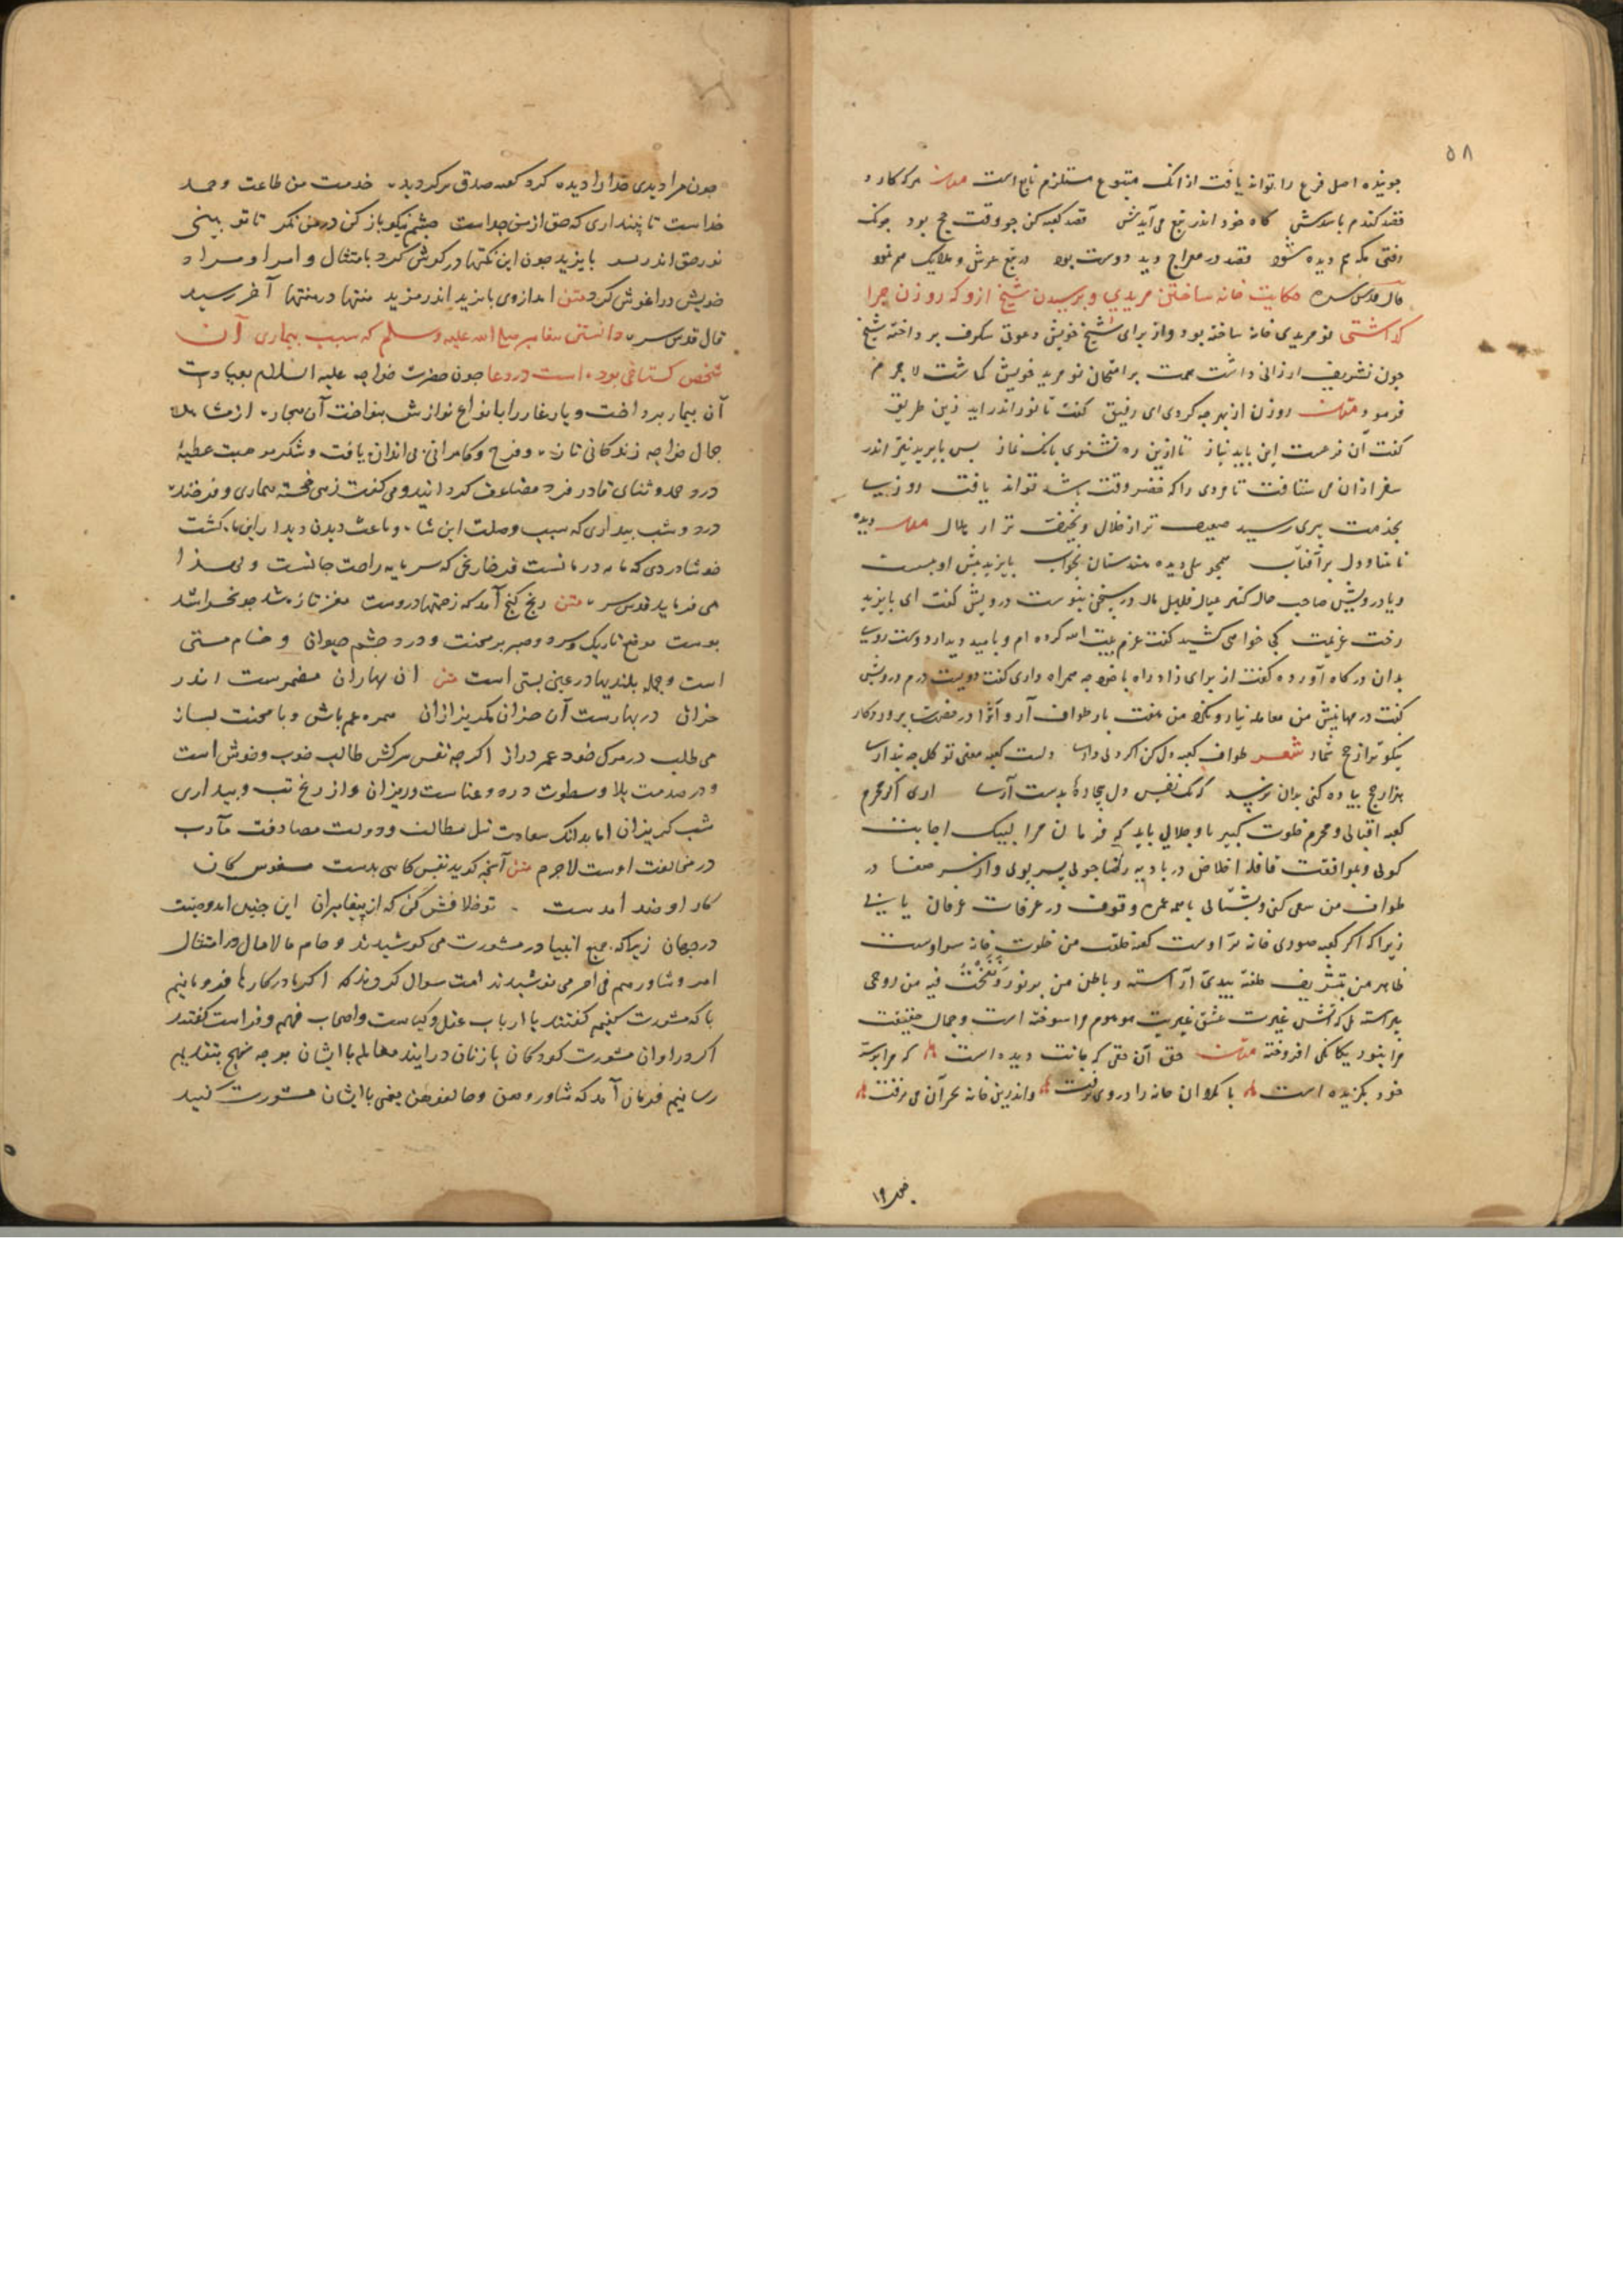 ۵۸
جوینده اصل فرع را تواند یافت از انک متبوع مستلزم تابع است متن هرکه کارد
قصد کندم باشدش کاه خود اندر تبع می آیدش قصد کعبه کن جو وقت حج بود جونک
رفتی مکه هم دیده شود قصد در معراج دید دوست بود در تبع عرش و ملایک هم نمود
قال قدس سره حکایت خانه ساختن مریدی و پرسیدن شیخ ازو که روزن چرا
کذاشتی نو مریدی خانه ساخته بود و از برای شیخ خویش دعوتی شکرف برداخته شیخ
جون تشریف ارزانی داشت همت بر امتحان نو مرید خویش کماشت لاجرم
فرمود متن روزن از بهر چه کردی ای رفیق کفت تا نور اندر اید زین طریق
کفت آن فرعست این باید نیاز تا ازین ره بشنوی بانک نماز بس بایزید نیز اندر
سفر ازان می شتافت تا مردی را که خضر وقت باشد تواند یافت روزی
بخدمت پیری رسید ضعیف تر از خلال و نحیف تر از هلال متن دیده
نابینا و دل بر آفتاب همجو بیلی دیده هندستان بخواب بایزید پیش او بنشست
ویا درویش صاحب حال کثیر عیال قلیل مال در سخن بنوست درویش کفت ای بایزید
رخت عزیمت کجا خواهی کشید کفت عزم بیت الله کرده ام و بامید دیدار دوست روی
بدان درکاه آورده کفت از برای زاد راه با خود چه همراه داری کفت دویست درم درویش
کفت درمهایش من معامله نیار و بکرد من هفت بار طواف آر و آنرا در حضرت پروردکار
نیکوتر از حج شمار شعر طواف کعبه دل کن اکر دلی داری دلست کعبه معنی تو کل چه پنداری
هزار حج پیاده کنی بدان نرسد که یک نفس دل بیچارهٔ بدست آری اری اکر محرم
کعبه اقبالی و محرم خلوت کبیریا و جلالی باید که فرمان مرا لبیک اجابت
کوئی و بموافقت قافله اخلاص در بادیه رضا جوئی بسر پوئی و از سر صفا در
طواف من سعی کنی و بشتابی با همه عمره وقوف در عرفات عرفان یابی
زیرا که اکر کعبه صوری خانه بر اوست کعبه خلقت من خلوت خانه سر اوست
ظاهر من بتشریف خلقته بیدی آراسته و باطن من بر نور و نفخت فیه من روحی
پیراسته بلکه آتش غیرت عشق غیریت موهوم مرا سوخته است و جمال حقیقت
مرا بنور یکانکی افروخته متن حق آن حقی که جانت دیده است که مرا بر بیت
خود بکزیده است تا بکرد ان خانه را در وی نرفت واندرین خانه بجز آن حی نرفت
جون مرا دیدی خدا را دیدهٔ کرد کعبه صدق برکردیدهٔ خدمت من طاعت و حمد
خداست تا پنداری که حق از من جداست چشم نیکو باز کن در من نکر تا تو بینی
نور حق اندر بشر بایزید جون این نکتها در کوش کرد بامتثال و امر او مراد
خویش در اغوش کرد متن امد از وی بایزید اندر مزید منتها در منتها آخر رسید
قال قدس سره دانستن پیغامبر صلی الله علیه وسلم که سبب بیماری آن
شخص کستاخی بوده است در دعا جون حضرت خواجه علیه السلام بعیادت
آن بیمار پرداخت و یار غار را بانواع نوازش بنواخت آن بیچاره از مشاهدهٔ
جمال خواجه زندکانی تازه و فرح و کامرانی بی اندازه یافت و شکر موهبت عطیهٔ
درد حمد و ثنای قادر فرد مضاعف کردانید و می کفت زهی خجسته بیماری و فرخنده
درد و شب بیداری که سبب وصلت این شاه و باعث دیدن دیدار این ماه کشت
خوشا دردی که مایه درمانست فرخا رنجی که سرمایه راحت جانست و لهذا
می فرماید قدس سره متن رنج کنج آمد که زحمتها دروست مغز تازه شد جو بخراشید
پوست موضع تاریک و سرد و صبر بر محنت و درد چشم حیوان و جام مستی
است و جمله بلندیها در عین پستی است متن ان بهاران مضمرست اندر
خزان در بهارست آن خزان مکریز ازان همره غم باش و با محنت بساز
می طلب در مرک خود عمر دراز اکرچه نفس سرکش طالب خوب و خوش است
و در صدمت بلا و سطوت درد و عناست و ریزان و از رنج تب و بیداری
شب کریزان اما بدانک سعادت نیل مطالب و دولت مصادفت مآرب
در مخالفت اوست لاجرم متن آنچه کوید نفس کاسی بدست مشنوس کان
کار او ضد امدست تو خلافش کن که از پیغامبران این جنین امد وصیت
در جهان زیرا که جمیع انبیا در مشورت می کوشیدند و جام مالامال در امتثال
امر و شاورهم فی امر می نوشیدند امت سوال کردند که اکر ما در کارها فرو مانیم
با که مشورت کنیم کفتند با ارباب عقل و کیاست و اصحاب فهم و فراست کفتند
اکر در اوان مشورت کودکان یا زنان درایند معامله با ایشان بر چه نهج بتقدیم
رسانیم فرمان آمد که شاوروهن و خالفوهن یعنی با ایشان مشورت کنید